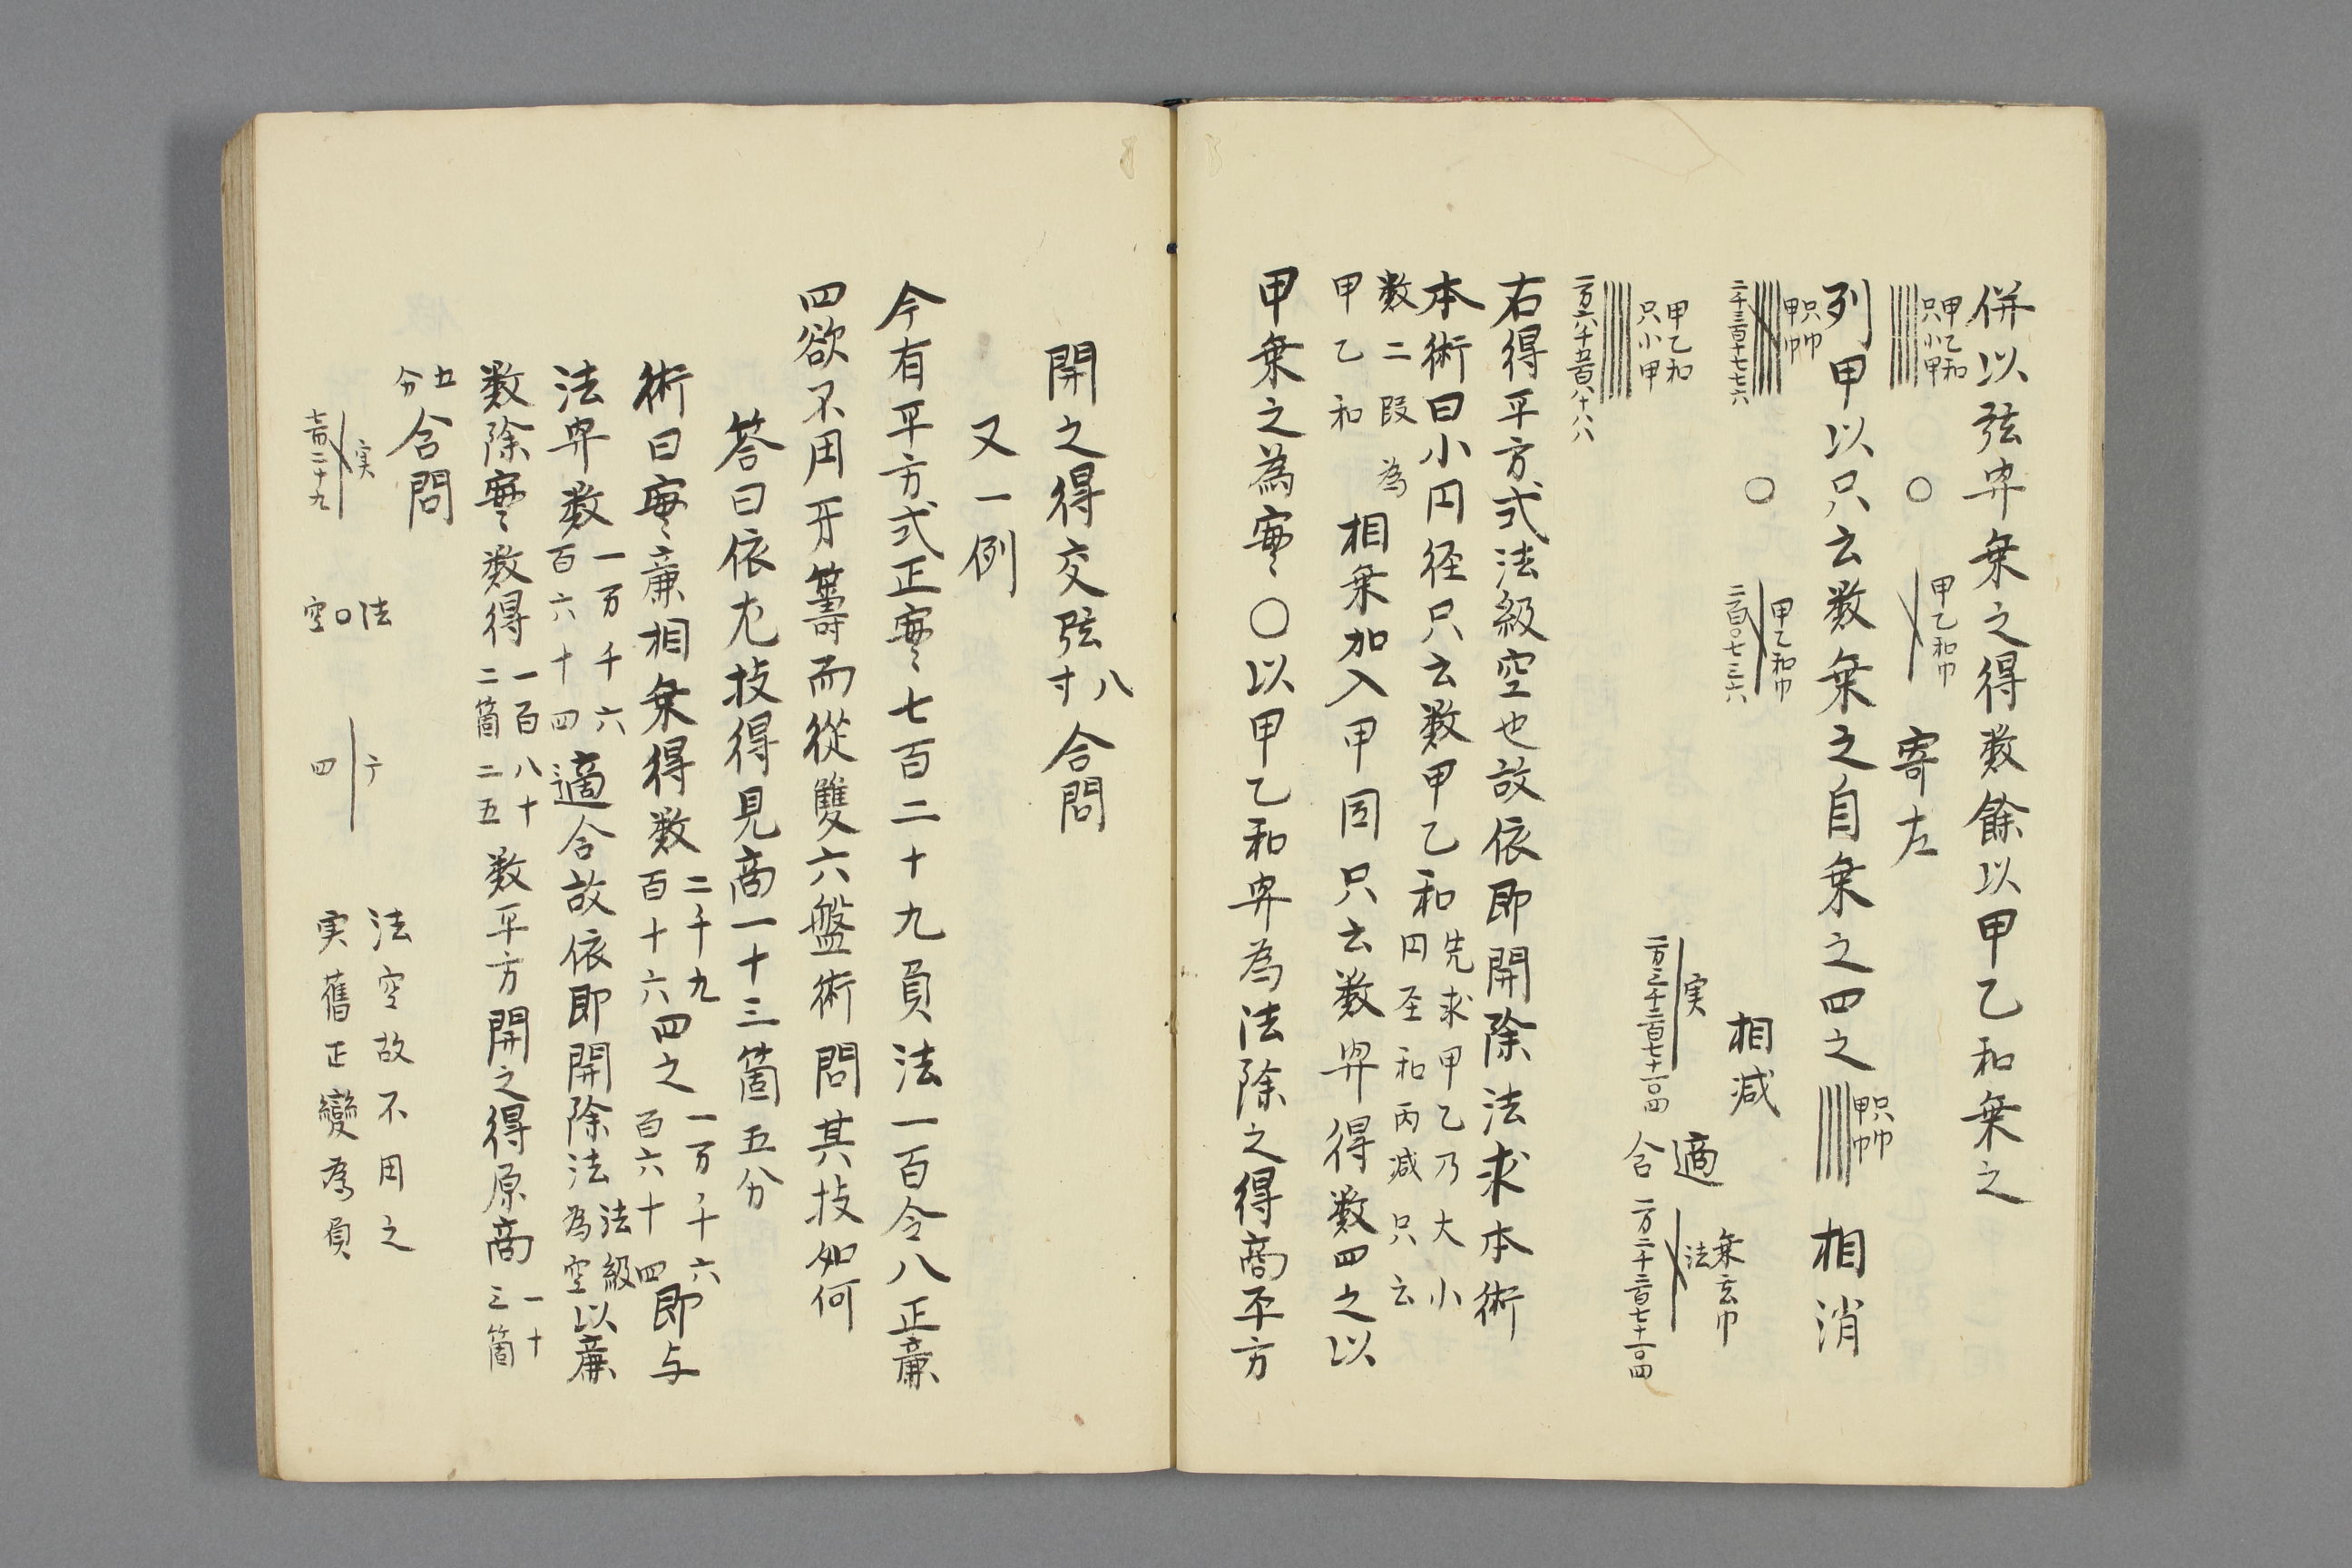 併以弦冪乗之得数餘以甲乙和乗之
甲乙和
只小甲
〇
甲乙和巾
寄左
列甲以只云数乗之自乗之四之
只巾
甲巾
相消
只巾
甲巾
二千三百七十七六
〇
甲乙和巾
二百〇七三六
相減
甲乙和
只小甲
一万六千五百八十八八
実
適
合
乗玄巾
法
右得平方式法級空也故依即開除法求本術
本術曰小円径只云数甲乙和
先求甲乙乃大小
円径和内減只云
数二段為
甲乙和
相乗加入甲因只云数冪得数四之以
甲乗之為実〇以甲乙和冪為法除之得商平方
開之得交弦
八
寸
合問
又一例
今有平方式正実七百二十九負法一百令八正廉
四欲不用开籌而從雙六盤術問其技如何
答曰依九技得見商一十三箇五分
術曰実廉相乗得数
二千九
百十六
四之
一万一千六
百六十四
即与
法冪数
一万一千六
百六十四
適合故依即開除法
法級
為空
以廉
数除実数得
一百八十
二箇二五
数平方開之得原商
一十
三箇
五
分
合問
実
七百二十九
法
〇
空
廉
四
法空故不用之
実舊正變為負